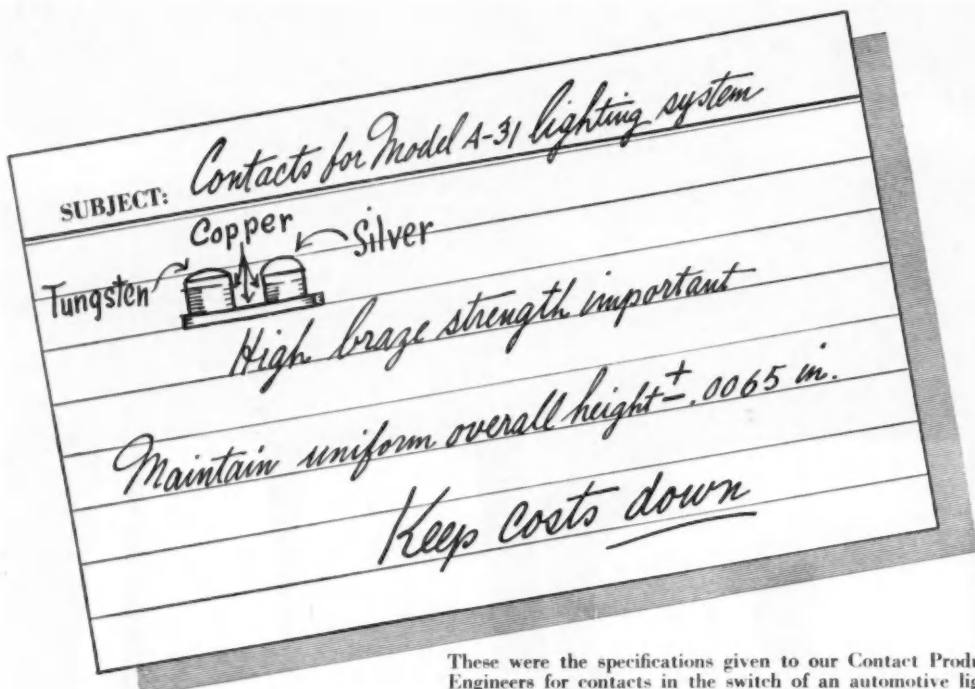 SUBJECT: Contacts for Model A-31 lighting system
Copper
Silver
Tungsten
High braze strength important
Maintain uniform overall height ± .0065 in.
Keep costs down
These were the specifications given to our Contact
Engineers for contacts in the switch of an automotive